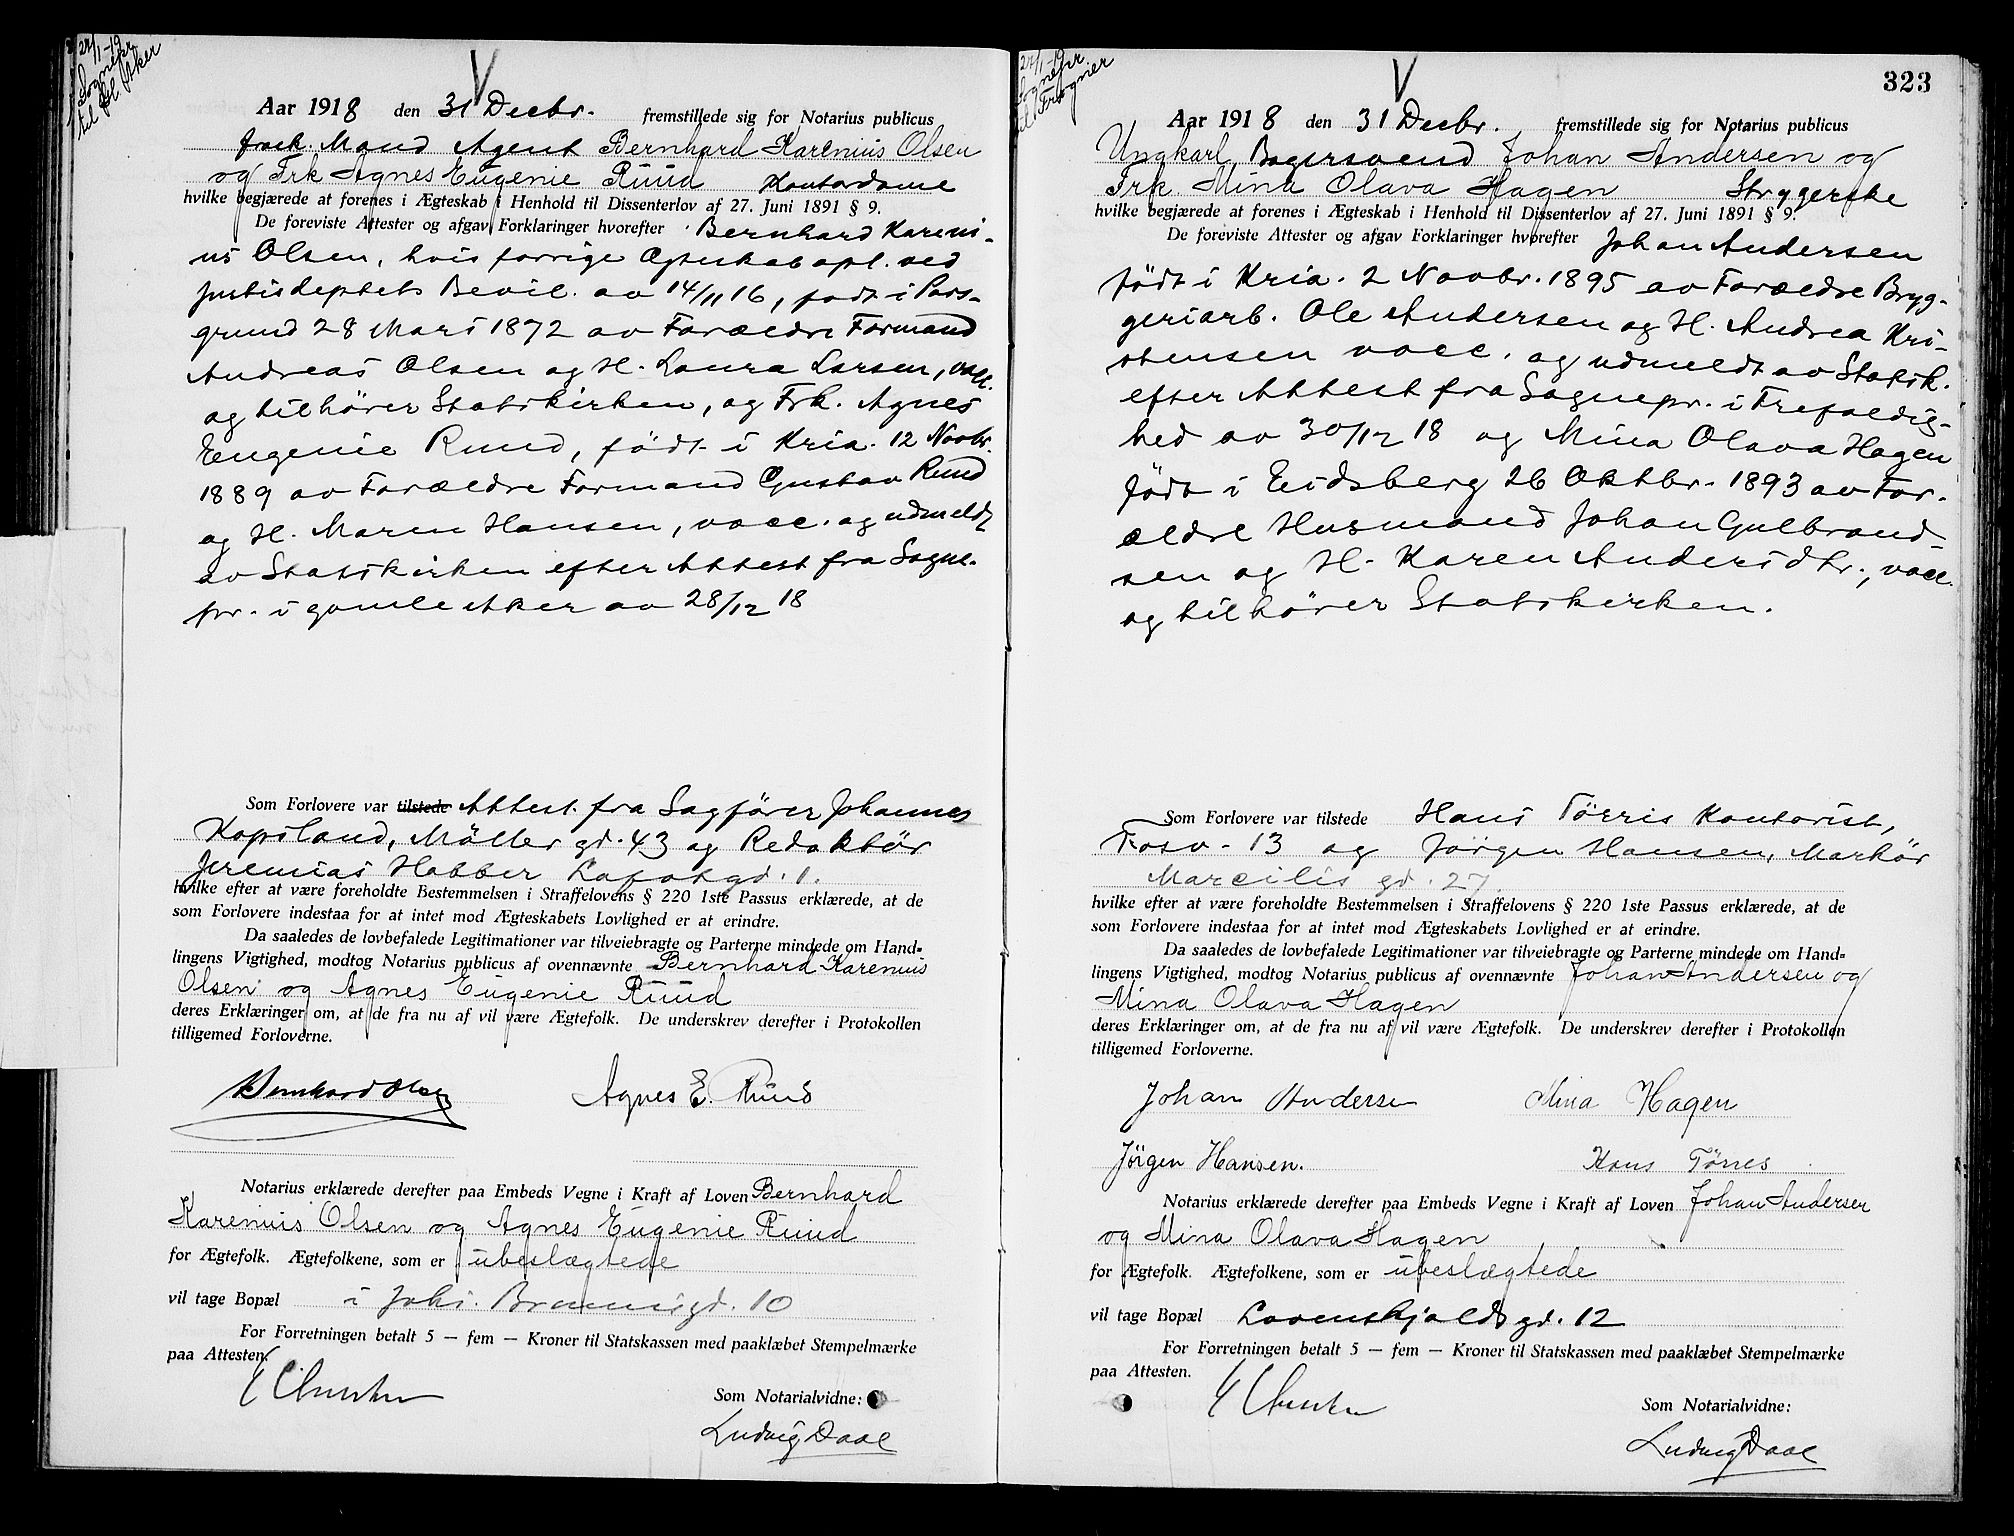 27/1-19
Sognepr.
til Gl. Aker
V
Aar 1918 den 31 Decbr. fremstillede sig for Notarius publicus
frask. Mand Agent Bernhard Karenius Olsen
og Frk Agnes Eugenie Ruud Kontordame
hvilke begjærede at forenes i Ægteskab i Henhold til Dissenterlov af 27. Juni 1891 § 9.
De foreviste Attester og afgav Forklaringer hvorefter Bernhard Kareni-
us Olsen, hvis forrige Egteskab opl. ved
Justisdeptets Bevil. av 14/11 16, født i Pors-
grund 28 Mars 1872 av Forældre Formand
Andreas Olsen og H. Laura Larsen, vacc.
og tilhører Statskirken, og Frk. Agnes
Eugenie Ruud, født i Kria. 12 Novbr.
1889 av Forældre Formand Gustav Ruud
og H. Maren Hansen, vacc. og udmeldt
av Statskirken efter Attest fra Sogne-
pr. i gamle Aker av 28/12 18
Som Forlovere var tilstede Attest fra Sagfører Johannes
Kopsland, Möller gd. 43 og Redaktör
Jeremias Habber Lakkegd. 1.
hvilke efter at være foreholdte Bestemmelsen i Straffelovens § 220 1ste Passus erklærede, at de
som Forlovere indestaa for at intet mod Ægteskabets Lovlighed er at erindre.
Da saaledes de lovbefalede Legitimationer var tilveiebragte og Parterne mindede om Hand-
lingens Vigtighed, modtog Notarius publicus af ovennævnte Bernhard Karenius
Olsen og Agnes Eugenie Ruud
deres Erklæringer om, at de fra nu af vil være Ægtefolk. De underskrev derefter i Protokollen
tilligemed Forloverne.
Bernhard Olsen Agnes E. Ruud
Notarius erklærede derefter paa Embeds Vegne i Kraft af Loven Bernhard
Karenius Olsen og Agnes Eugenie Ruud
for Ægtefolk. Ægtefolkene, som er ubeslægtede
vil tage Bopæl i Johs. Brunsgd. 10
For Forretningen betalt 5 — fem — Kroner til Statskassen med paaklæbet Stempelmærke
paa Attesten.
Som Notarialvidne:
Ludvig Daae
27/1-19
Sognepr.
til Frogner
V
323
Aar 1918 den 31 Decbr. fremstillede sig for Notarius publicus
Ungkarl, Bagersvend Johan Andersen og
Frk. Mina Olava Hagen Strygerske
hvilke begjærede at forenes i Ægteskab i Henhold til Dissenterlov af 27. Juni 1891 § 9.
De foreviste Attester og afgav Forklaringer hvorefter Johan Andersen
født i Kria. 2 Novbr. 1895 av Forældre Bryg-
geriarb. Ole Andersen og H. Andrea Kri-
stensen vacc. og udmeldt av Statsk.
efter Attest fra Sognepr. i Trefoldig-
hed av 30/12 18 og Mina Olava Hagen
født i Eidsberg 26 Oktbr. 1893 av For-
ældre Husmand Johan Gulbrand-
sen og H. Karen Andersdtr., vacc.
og tilhører Statskirken.
Som Forlovere var tilstede Hans Törris Kontorist,
Fosv. 13 og Jörgen Hansen, Markör
Marcilis gd. 27.
hvilke efter at være foreholdte Bestemmelsen i Straffelovens § 220 1ste Passus erklærede, at de
som Forlovere indestaa for at intet mod Ægteskabets Lovlighed er at erindre.
Da saaledes de lovbefalede Legitimationer var tilveiebragte og Parterne mindede om Hand-
lingens Vigtighed, modtog Notarius publicus af ovennævnte Johan Andersen og
Mina Olava Hagen
deres Erklæringer om, at de fra nu af vil være Ægtefolk. De underskrev derefter i Protokollen
tilligemed Forloverne.
Johan Andersen Mina Hagen
Jörgen Hansen. Hans Törres
Notarius erklærede derefter paa Embeds Vegne i Kraft af Loven Johan Andersen
og Mina Olava Hagen
for Ægtefolk. Ægtefolkene, som er ubeslægtede
vil tage Bopæl Lovenskjoldsgd. 12
For Forretningen betalt 5 — fem — Kroner til Statskassen med paaklæbet Stempelmærke
paa Attesten.
Som Notarialvidne:
Ludvig Daae